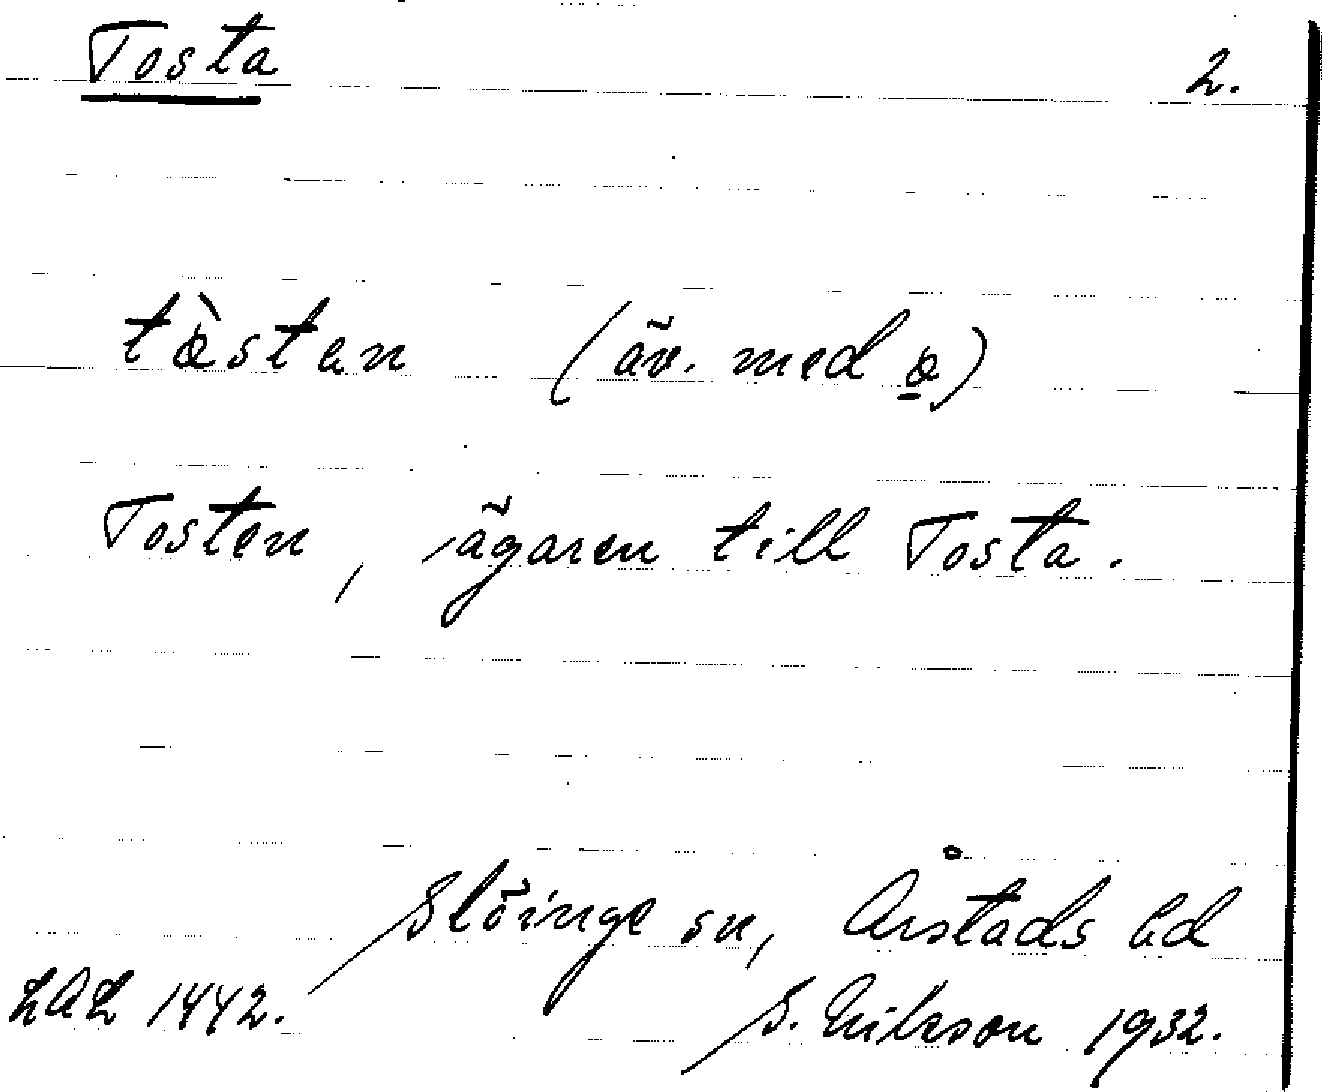 Tosta 2.
tòsten (äv. med o)
Tosten, ägaren till Tosta.
Slöinge sn, Årstads hd
LAL 1442. S. Nilsson 1932.